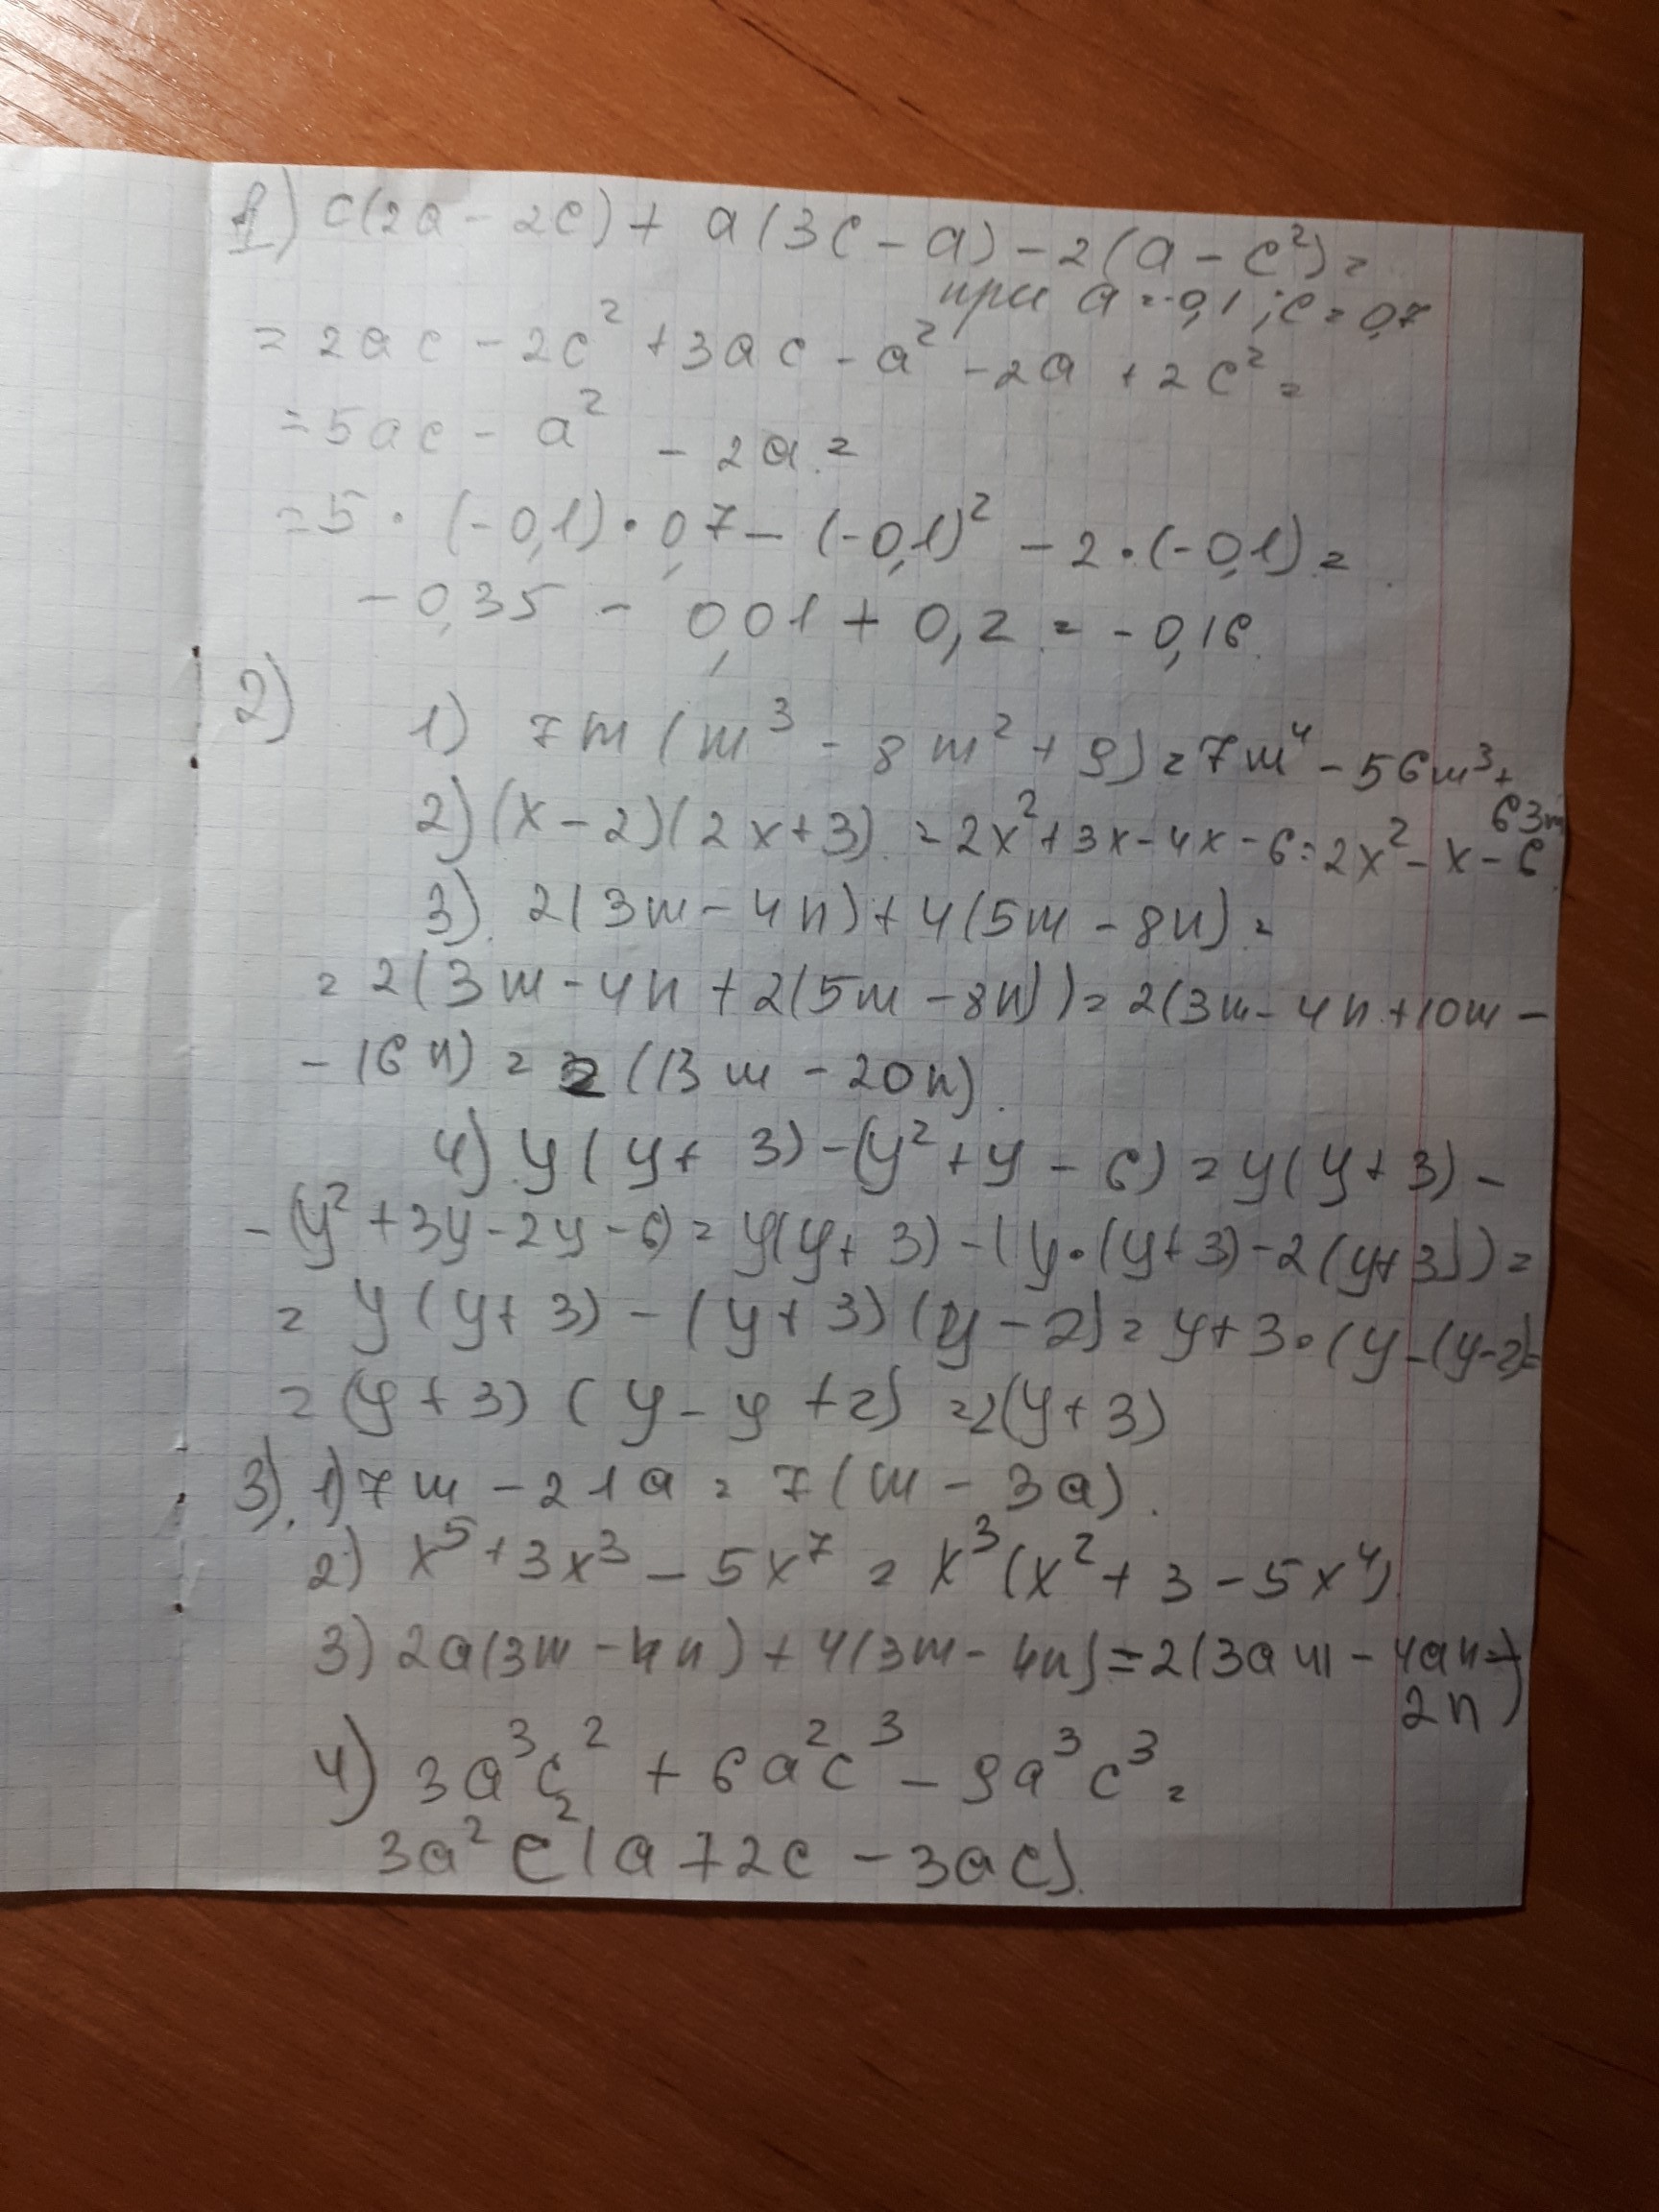 1) c(2a - 2c) + a(3c - a) - 2(a - c²) =
при a = -0,1 ; c = 0,7
= 2ac - 2c² + 3ac - a² - 2a + 2c² =
= 5ac - a² - 2a =
= 5 · (-0,1) · 0,7 - (-0,1)² - 2 · (-0,1) =
- 0,35 - 0,01 + 0,2 = - 0,16.
2)
1) 7m (m³ - 8m² + 9) = 7m⁴ - 56m³ +
63m
2) (x - 2)(2x + 3) = 2x² + 3x - 4x - 6 = 2x² - x - 6.
3) 2(3m - 4n) + 4(5m - 8n) =
= 2(3m - 4n + 2(5m - 8n)) = 2(3m - 4n + 10m -
- 16n) = 2(13m - 20n).
4) y(y + 3) - (y² + y - 6) = y(y + 3) -
- (y² + 3y - 2y - 6) = y(y + 3) - (y · (y + 3) - 2(y + 3)) =
= y(y + 3) - (y + 3)(y - 2) = y + 3 · (y - (y - 2) =
= (y + 3) (y - y + 2) = 2(y + 3)
3). 1) 7m - 21a = 7(m - 3a).
2) x⁵ + 3x³ - 5x⁷ = x³(x² + 3 - 5x⁴).
3) 2a(3m - 4n) + 4(3m - 4n) = 2(3am - 4an +
2n)
4) 3a³c² + 6a²c³ - 9a³c³ =
3a²c²(a + 2c - 3ac).